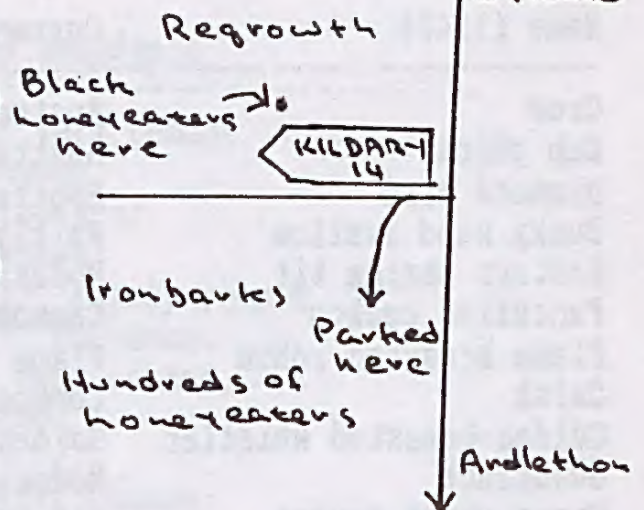 Regrowth
Black
honeyeaters
here
KILDARY
14
Ironbarks
Parked
here
Hundreds of
honeyeaters
Ardlethon